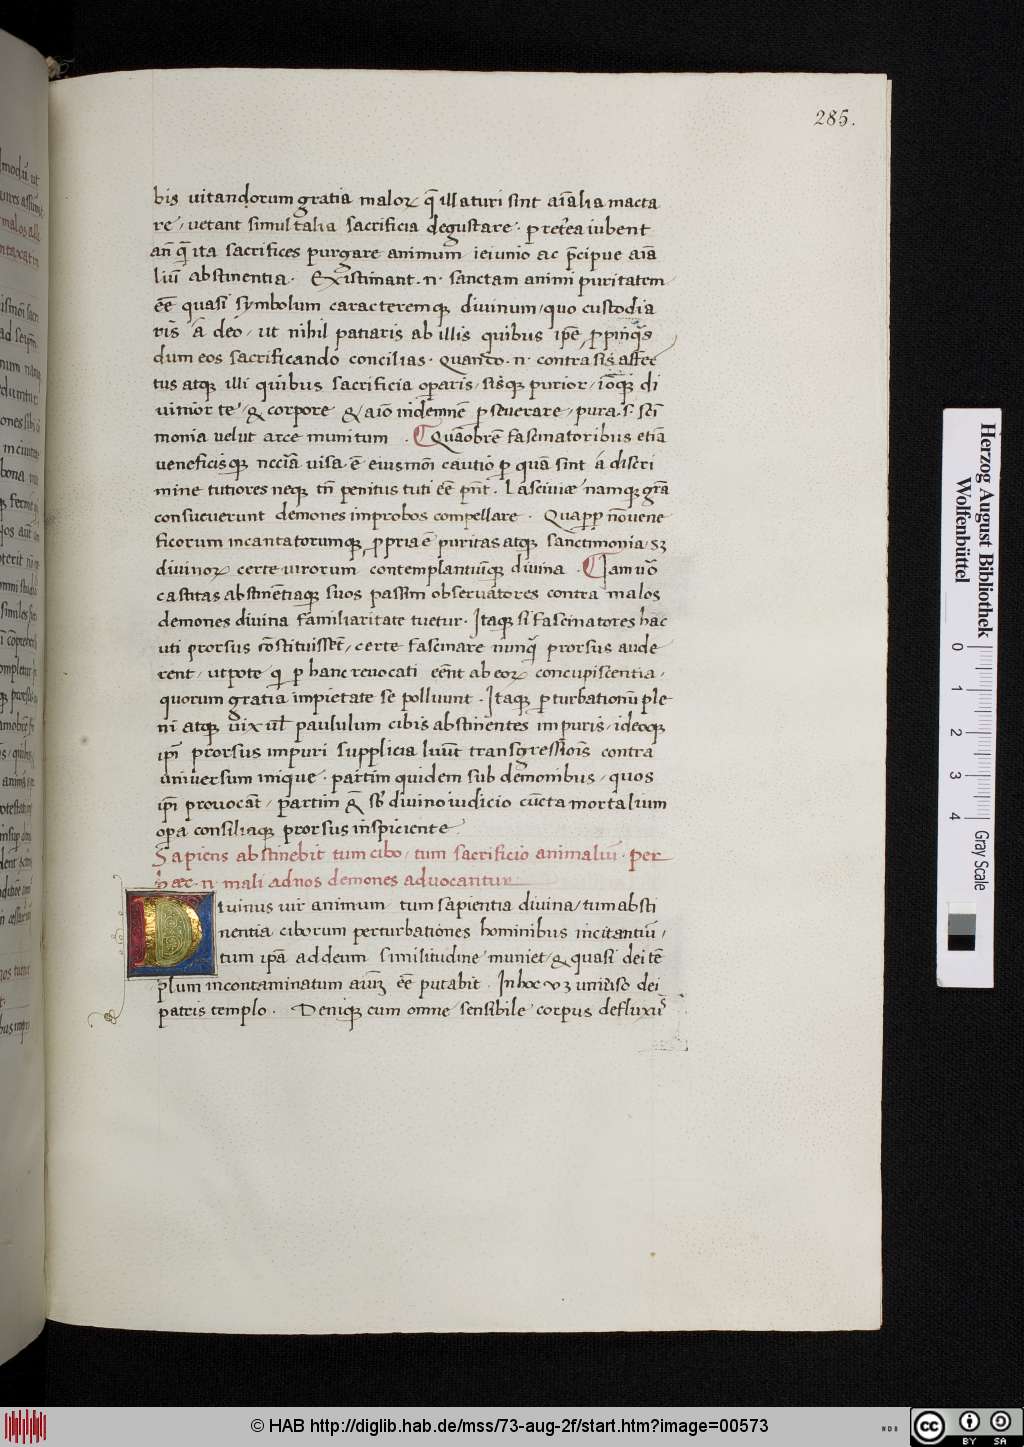 285.
bis uitandorum gratia maloꝝ q̄ illaturi sint aīalia macta
re, uetant simul talia sacrificia degustare. pret̄ea iubent
an̄ q̄ ita sacrifices purgare animum ieiunio ac p̄cipue aīa
liū abstinentia. Existimant .n. sanctam animi puritatem
eē quasi symbolum caracteremqꝫ diuinum, quo custodia
ris á deo, ut nihil patiaris ab illis quibus ip̄e ꝓpinq̄s
dum eos sacrificando concilias. .n. contra sis affec
tus atqꝫ illi quibus sacrificia oꝑaris, sisqꝫ purior, iōqꝫ di
uinior te, & corpore & aīo indemnē ꝑseuerare, pura .s. scī
monia uelut arce munitum. Quāobrē fascinatoribus etiā
ueneficisqꝫ nccīa uisa ē eiusmōi cautio, ꝑ quā sint á discri
mine tutiores neqꝫ tn̄ penitus tuti eē pn̄t. Lasciuiæ namqꝫ grā
consueuerunt demones improbos compellare. Quaꝓp n̄ uene
ficorum incantatorumqꝫ ꝓpria ē puritas atqꝫ sanctimonia, sꝫ
diuinoꝝ certe uirorum contemplantiūqꝫ diuina. Iam uo
castitas abstinētiaqꝫ suos passim obseruatores contra malos
demones diuina familiaritate tuetur. Itaqꝫ si fascinatores hāc
uti prorsus cōstituissēt, certe fascinare nunq̄ prorsus aude
rent, utpote q̄ ꝑ hanc reuocati eēnt ab eoꝝ concupiscentia,
quorum gratia impietate se polluunt. Itaqꝫ ꝑturbationū ple
ni atqꝫ uix ul̄ paululum cibis abstinentes impuris, ideoqꝫ
ip̄i prorsus impuri supplicia luūt transgressiōis contra
uniuersum inique. partim quidem sub demonibus, quos
ip̄i prouocāt, partim & sb̄ diuino iudicio cūcta mortalium
opa consiliaqꝫ prorsus inspiciente.
Sapiens abstinebit tum cibo, tum sacrificio animaliū. per
hæc .n. mali ad nos demones aduocantur
Diuinus uir animum tum sapientia diuina, tum absti
nentia ciborum perturbationes hominibus incitantiū,
tum ip̄a ad deum similitudine muniet, & quasi dei tē
plum incontaminatum aīuꝫ eē putabit. In hoc uꝫ uniūso dei
patris templo. Deniqꝫ cum omne sensibile corpus defluxū
Herzog August Bibliothek
Wolfenbüttel
0 1 2 3 4
Gray Scale
© HAB http://diglib.hab.de/mss/73-aug-2f/start.htm?image=00573
WDB
cc BY SA